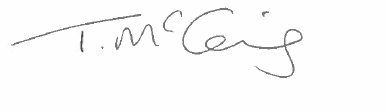 T. McCaig